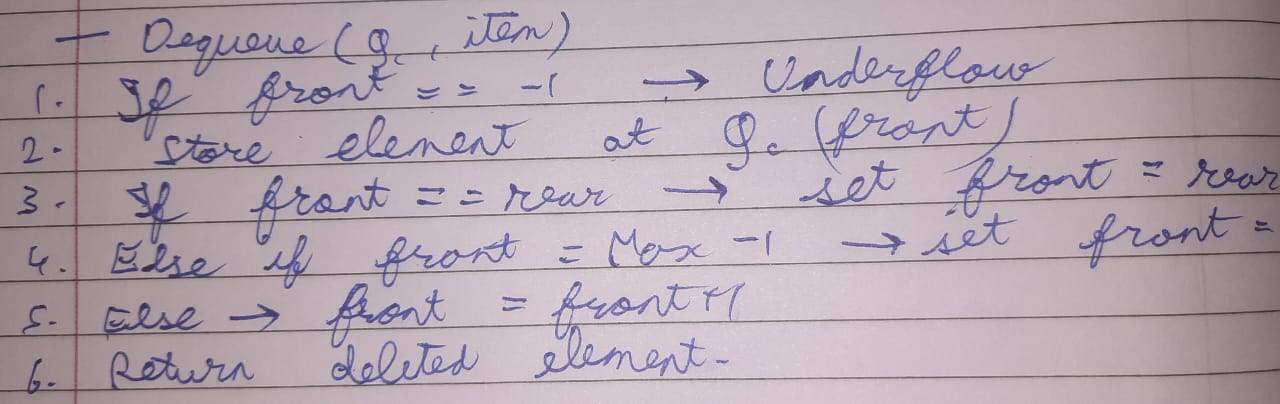 — Dequeue (Q, item)
1. If front == -1 → Underflow
2. Store element at Q. (front)
3. If front == rear → set front = rear
4. Else if front = Max -1 → set front =
5. Else → front = front+1
6. Return deleted element.